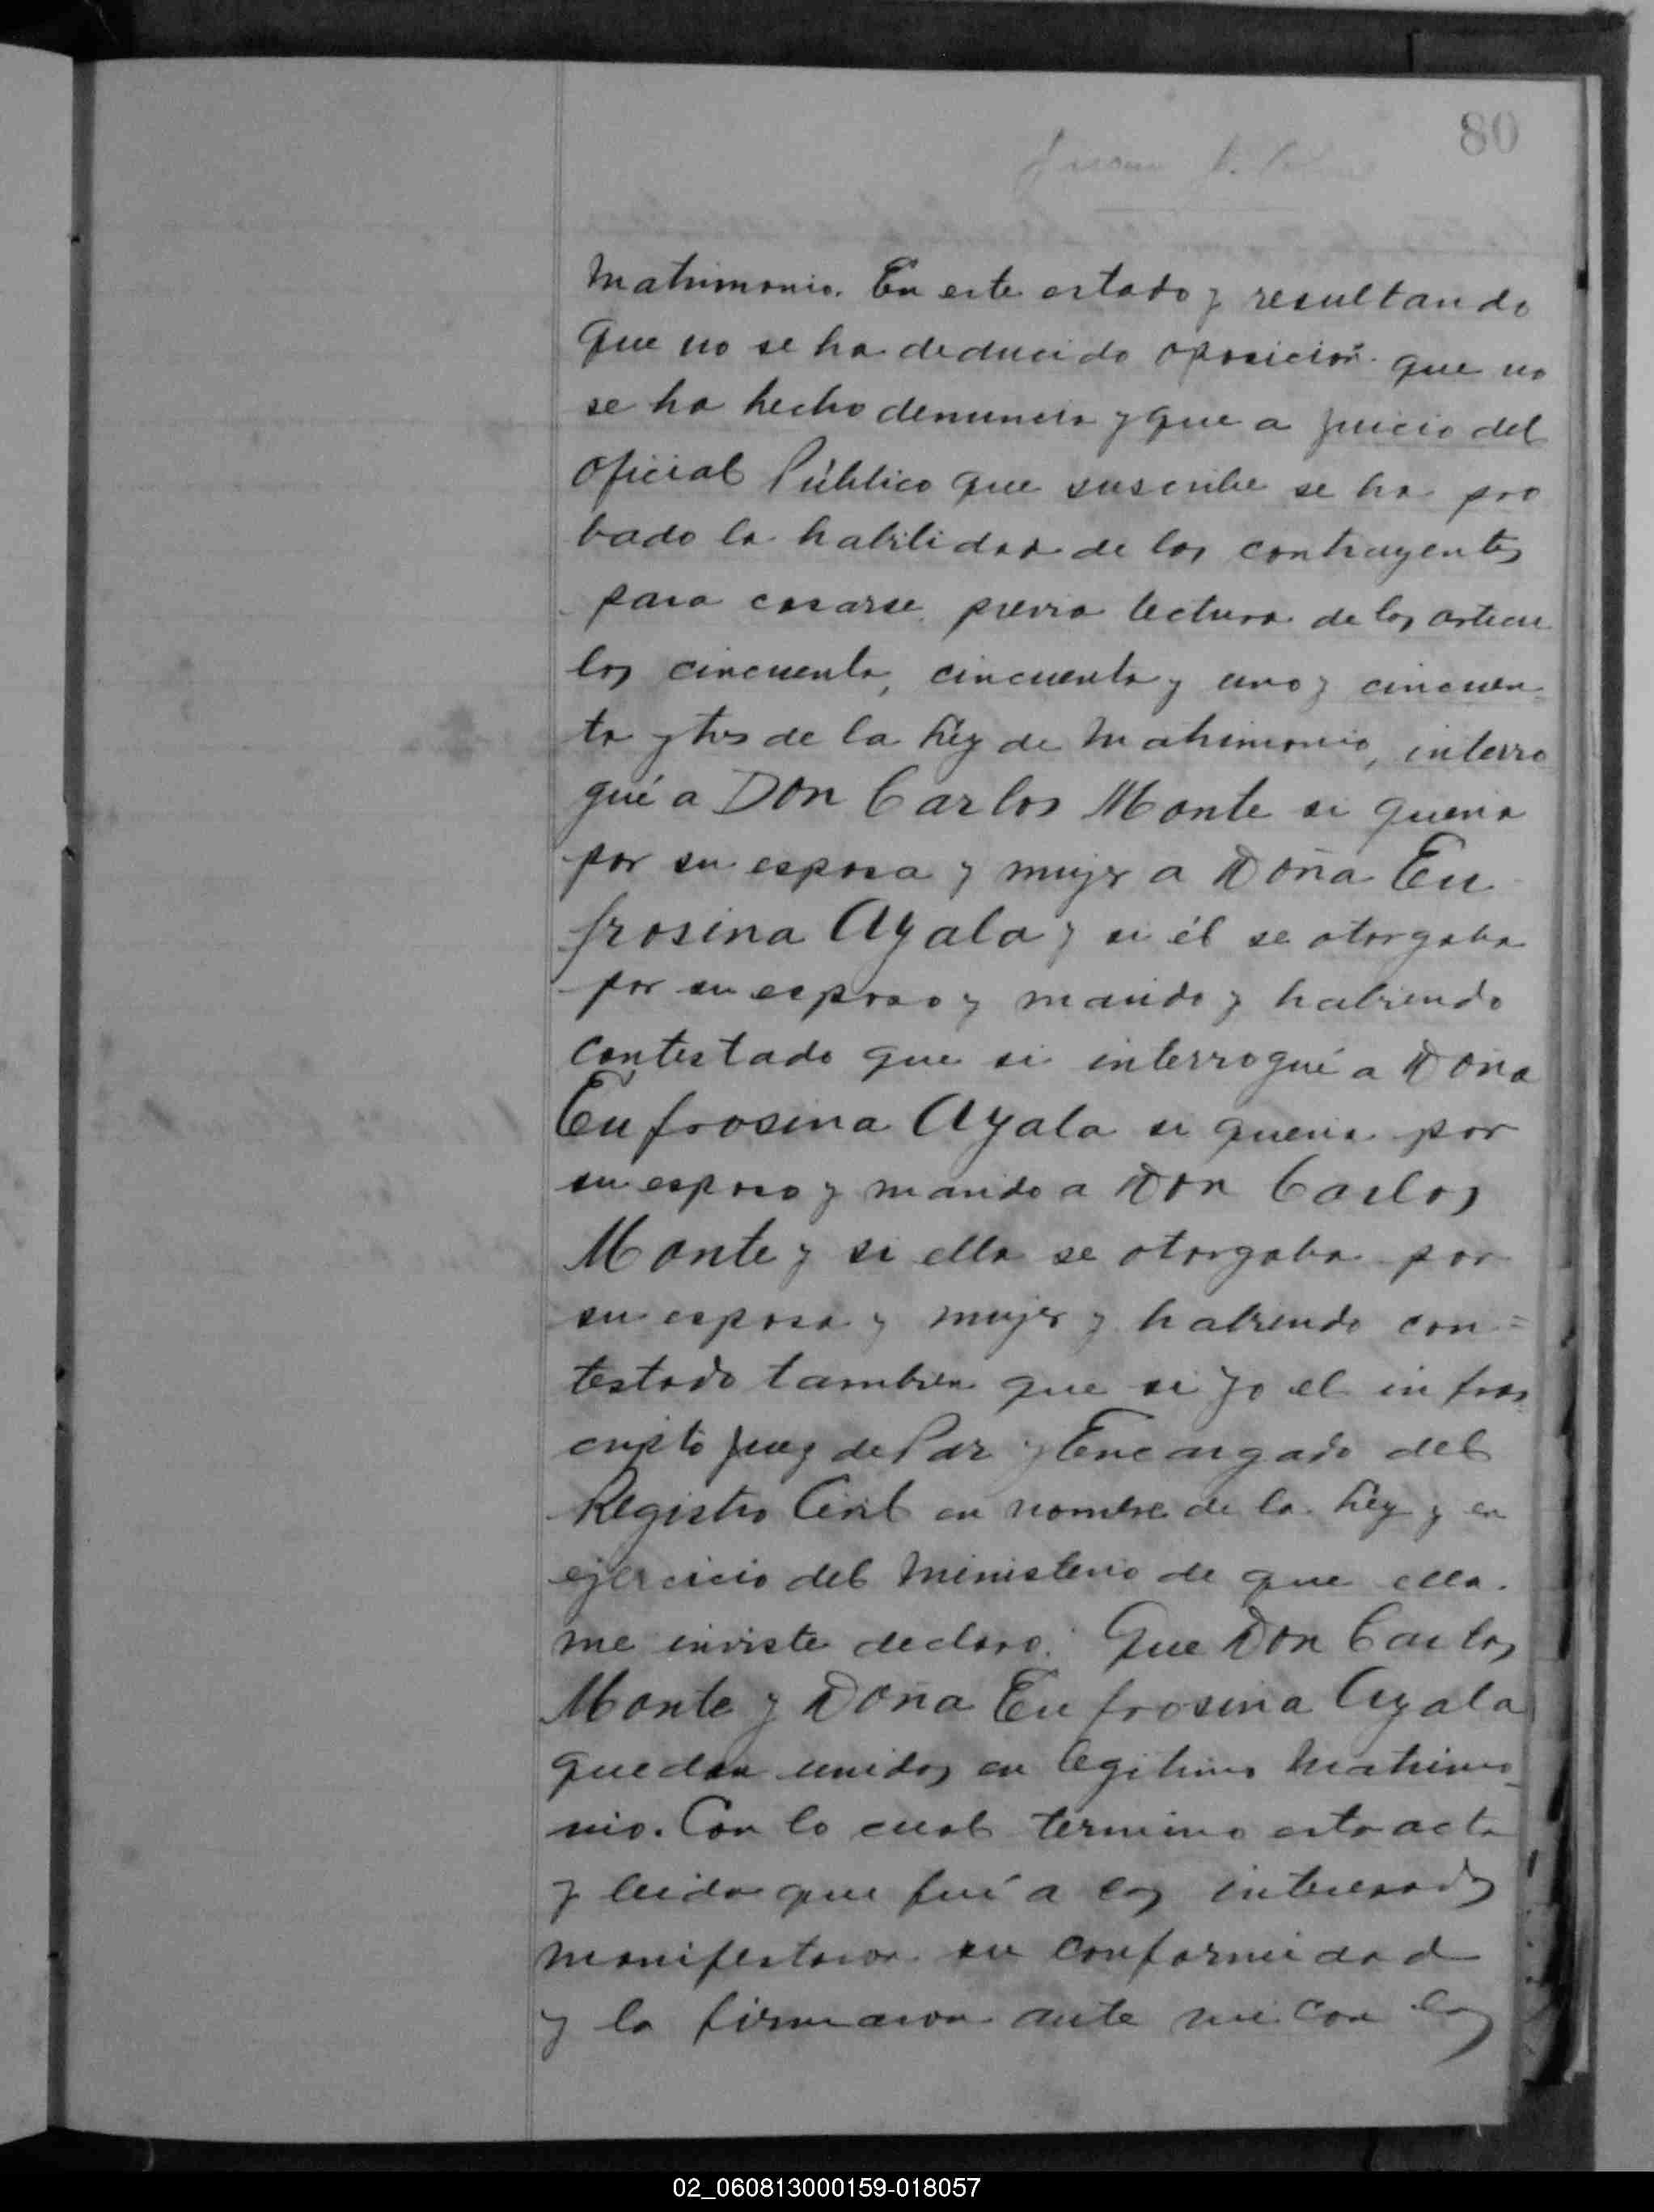 80
Matrimonio. En este estado y resultando
que no se ha deducido oposición que no
se ha hecho denuncia y que a juicio del
Oficial Público que suscribe se ha pro
bado la habilidad de los contrayentes
para casarse, previa lectura de los articu
los cincuenta, cincuenta y uno y cincuen-
ta y tres de la Ley de Matrimonio, interro
gué a Don Carlos Monte si queria
por su esposa y mujer a Doña Eu
frosina Ayala y si él se otorgaba
por su esposo y marido y habiendo
contestado que si interrogué a Doña
Eufrosina Ayala si queria por
su esposo y marido a Don Carlos
Monte y si ella se otorgaba por
su esposa y mujer y habiendo con=
testado tambien que si yo el infras
cripto Juez de Paz y Encargado del
Registro Civil en nombre de la Ley y en
ejercicio del Ministerio de que ella
me inviste declaro: Que Don Carlos
Monte y Doña Eufrosina Ayala
quedan unidos en legitimo Matrimo-
nio. Con lo cual termino esta acta
y leida que fué a los interesados
manifestaron su conformidad
y la firmaron ante mi con los
02_060813000159-018057